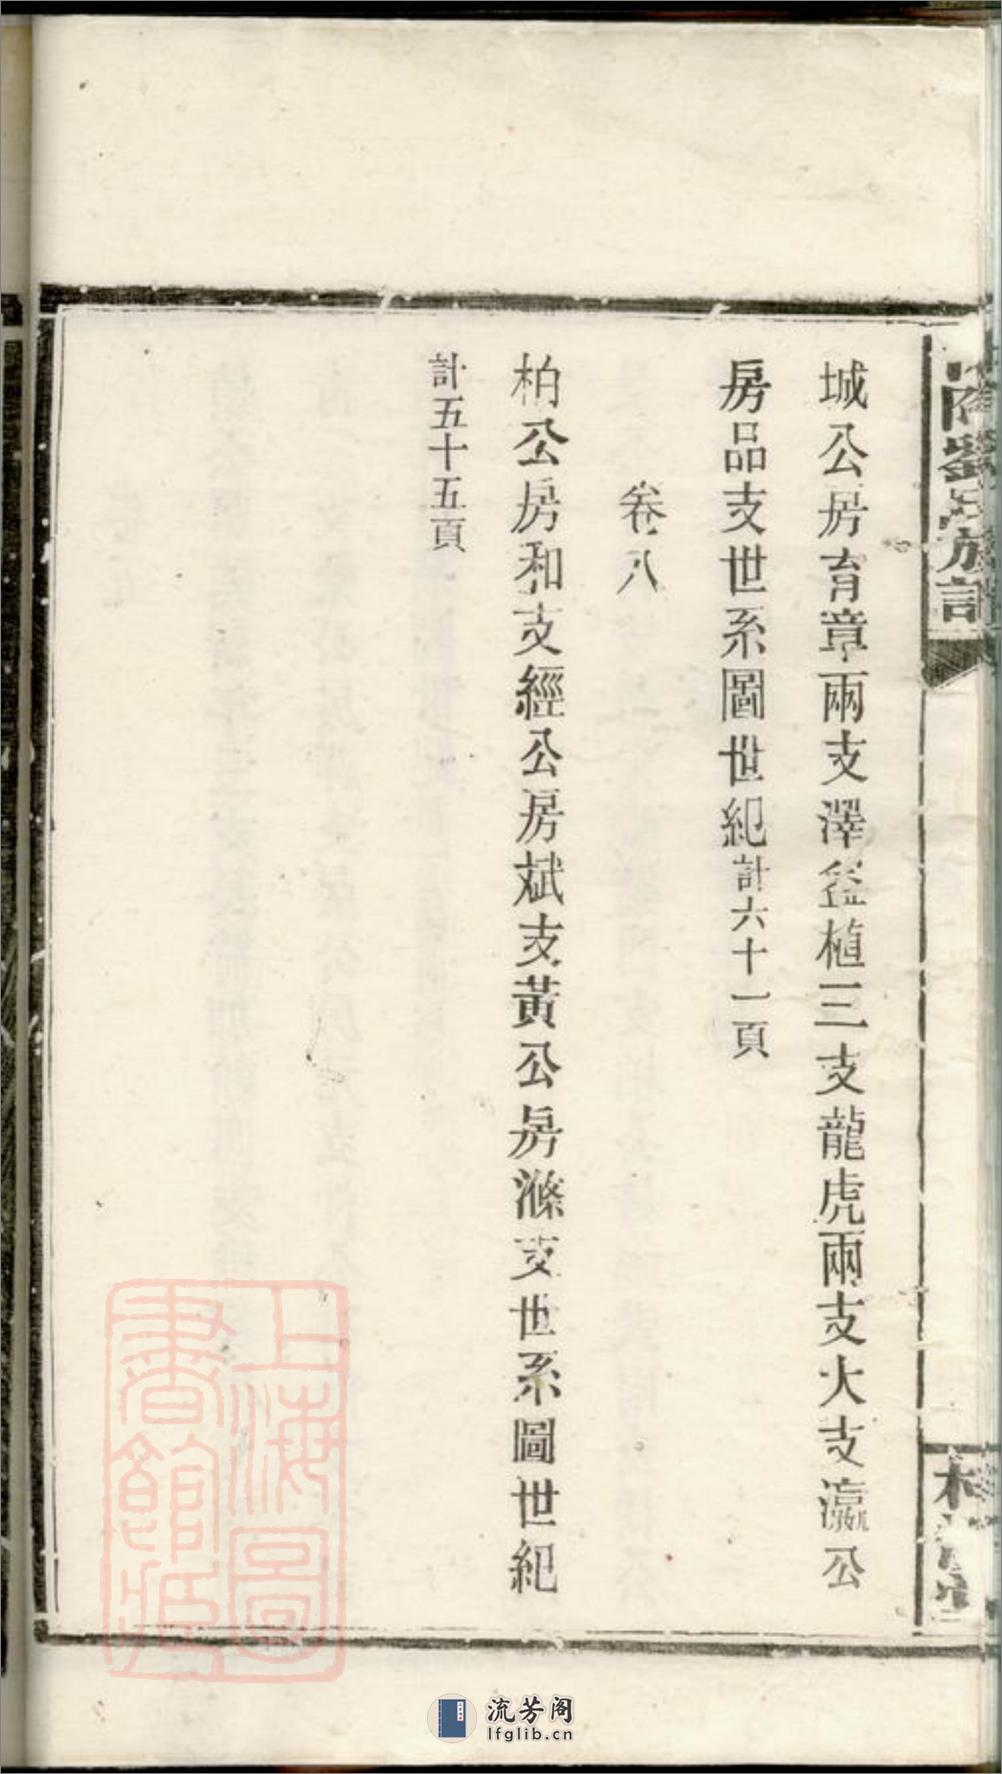 城公房育章兩支澤盆植三支龍虎兩支大支瀛公
房品支世系圖世紀計六十一頁
卷八
柏公房和支經公房斌支黃公房滌支世系圖世紀
計五十五頁
劉氏族譜
上海圖書館藏
流芳阁
lfglib.cn